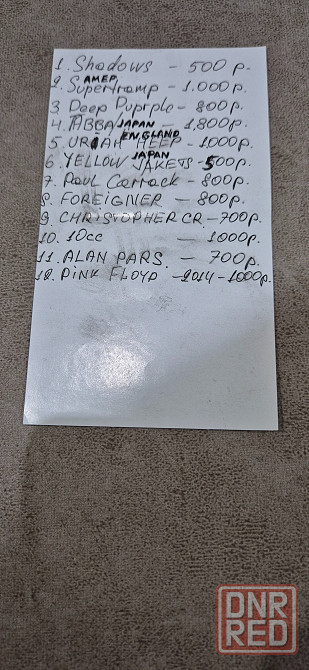 1. Shadows - 500 р.
2. Supertramp АМЕР. - 1.000р.
3 Deep Puprple - 800р.
4. ABBA JAPAN - 1,800р.
5. URIAH HEEP ENGLAND - 1000р.
6. YELLOW JAKETS JAPAN - 500р.
7. Paul Carrack - 800р.
8. FOREIGNER - 800р.
9. CHRISTOPHER CR. - 700р.
10. 10cc - 1000р.
11. ALAN PARS. - 700р.
12. PINK FLOYD - 2014 - 1000р.
DNR
RED